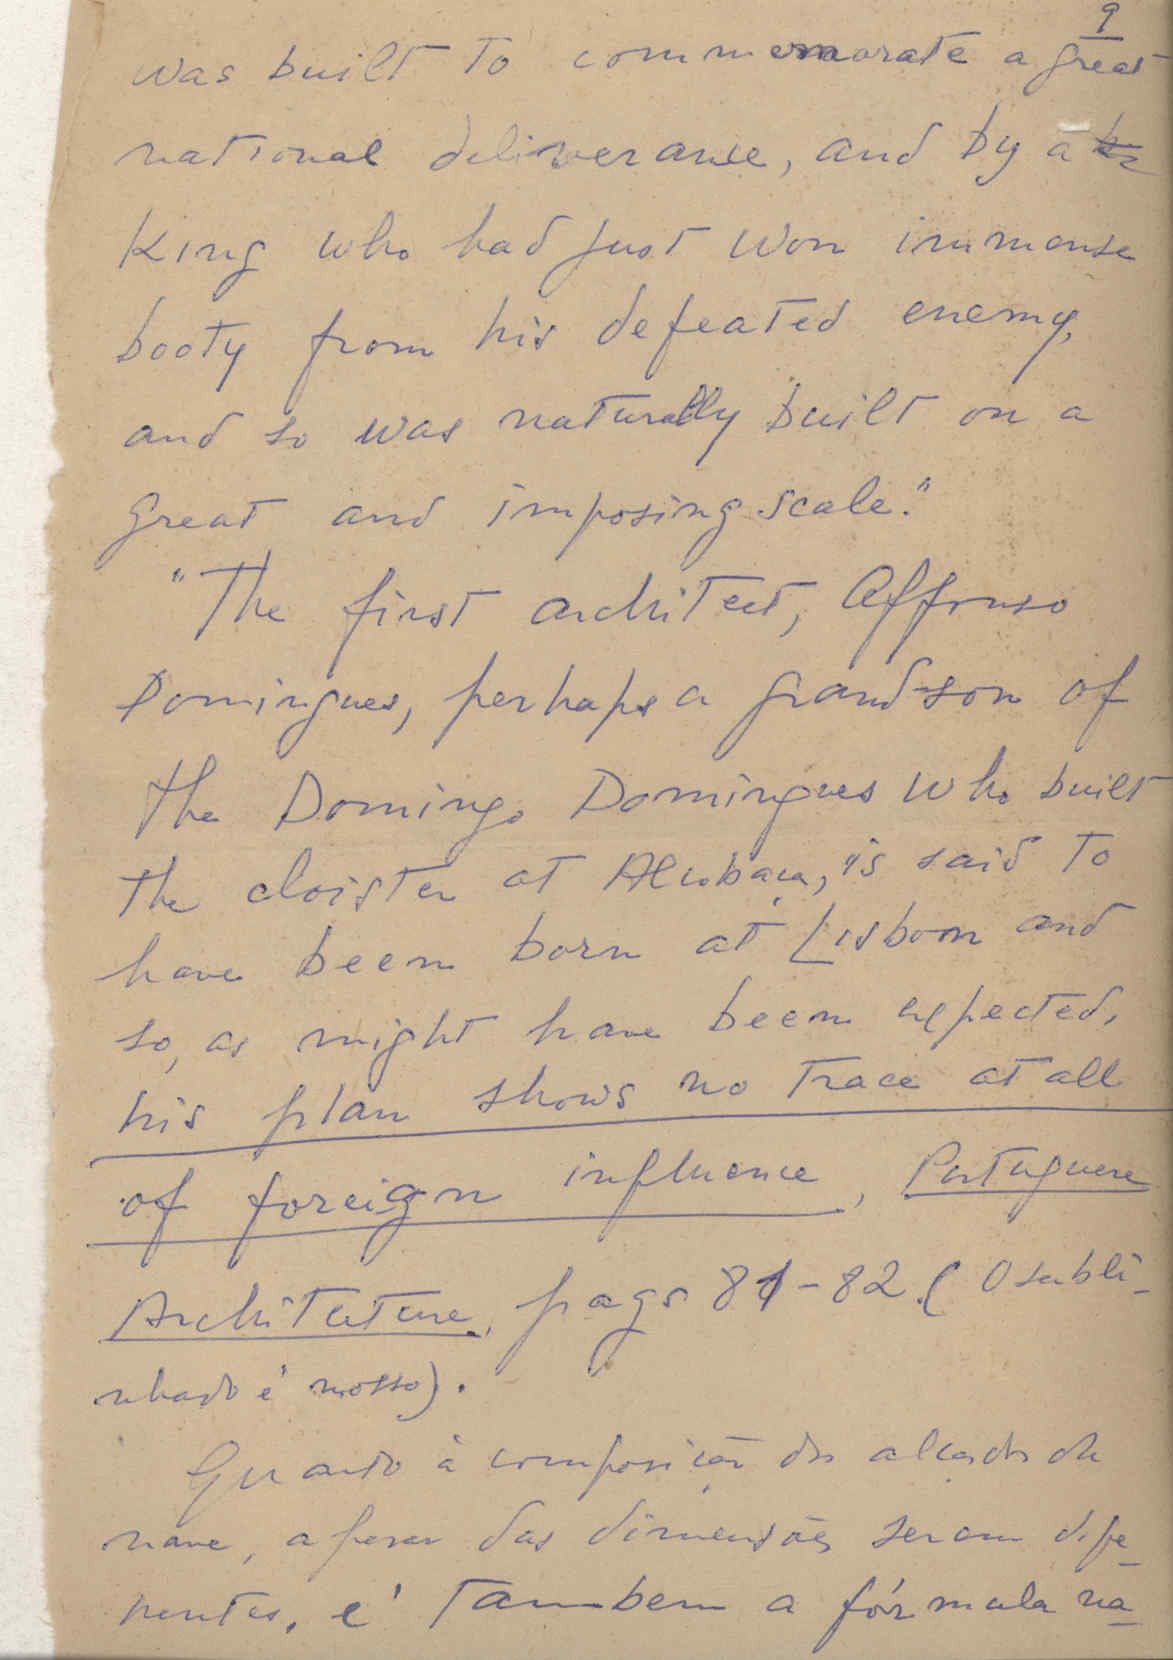 9
was built to commemorate a great
national deliverance, and by a
King who had just won immense
booty from his defeated enemy,
and so was naturally built on a
great and imposing scale."
"The first architect, Affonso
Domingues, perhaps a grandson of
the Domingo Domingues who built
the cloister at Alcobaça, is said to
have been born at Lisbon and
so, as might have been expected,
his plan shows no trace at all
of foreign influence, Portuguese
Architecture, pags 81-82. (O subli-
nhado é nosso).
Quanto à composição dos alçados da
nave, apesar das dimensões serem dife-
rentes, é tambem a fórmula na-